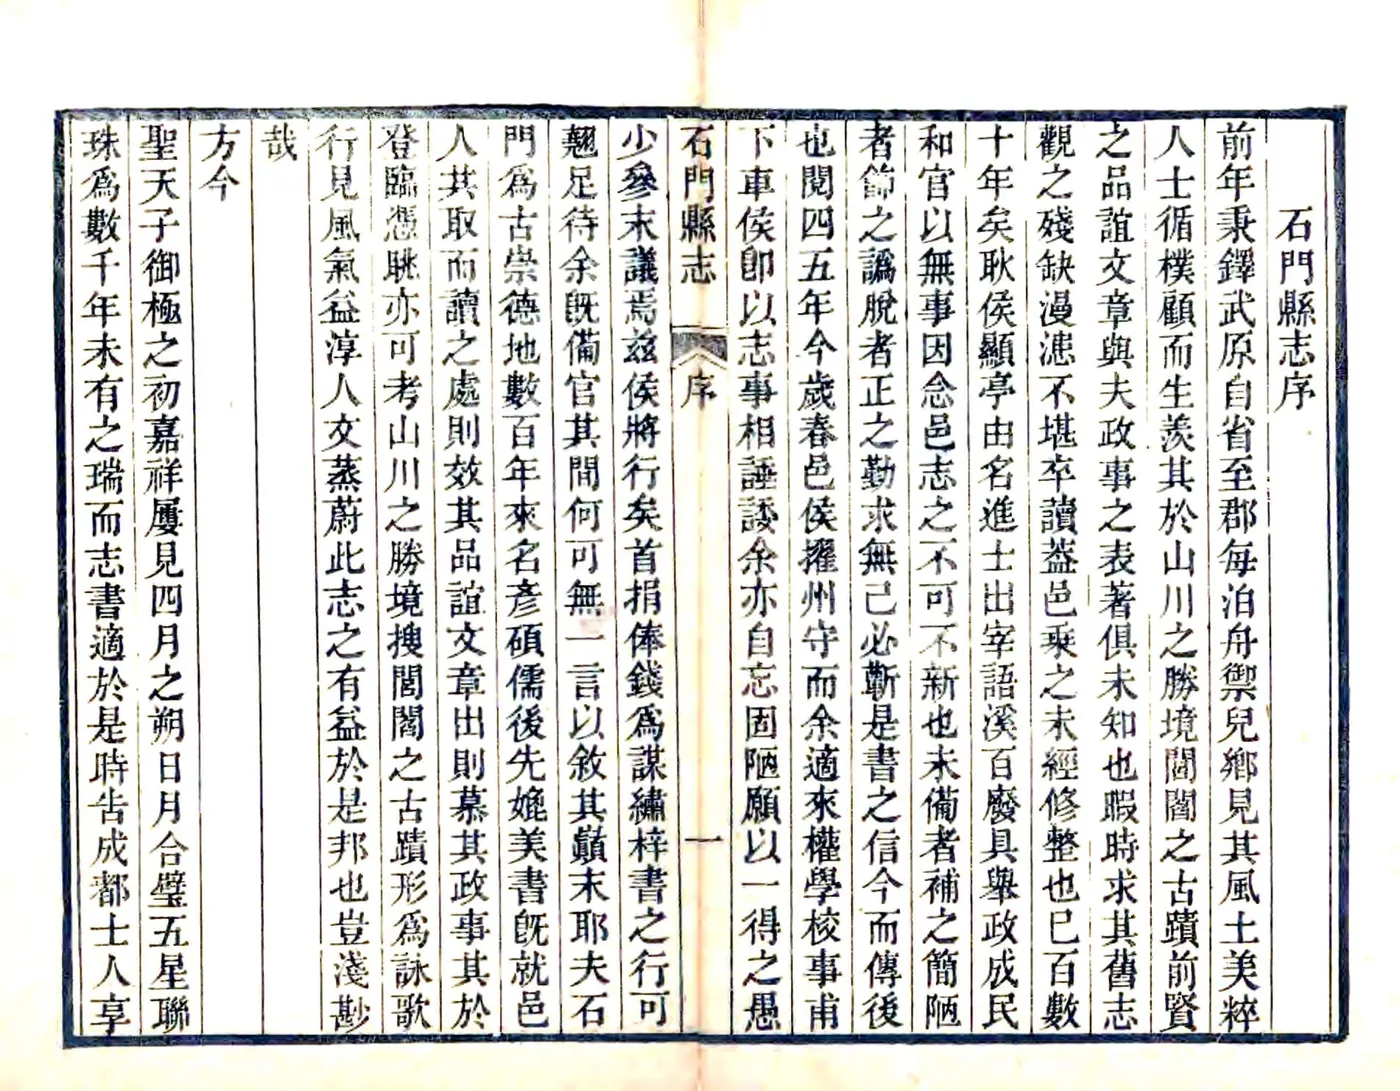 石門縣志序
前年秉鐸武原自省至郡每泊舟禦兒鄉見其風土美粹
人士循樸顧而生羨其於山川之勝境閭閻之古蹟前賢
之品誼文章與夫政事之表著俱未知也暇時求其舊志
觀之殘缺漫漶不堪卒讀葢邑乘之未經修整也巳百數
十年矣耿侯顯亭由名進士出宰語溪百廢具舉政成民
和官以無事因念邑志之不可不新也未備者補之簡陋
者飾之譌脫者正之勤求無己必蘄是書之信今而傳後
也閱四五年今歲春邑侯擢州守而余適來權學校事甫
下車侯卽以志事相諈諉余亦自忘固陋願以一得之愚
石門縣志 序 一
少參末議焉兹侯將行矣首捐俸錢爲謀繡梓書之行可
翹足待余旣備官其間何可無一言以敘其巔末耶夫石
門爲古崇德地數百年來名彥碩儒後先媲美書旣就邑
人其取而讀之處則效其品誼文章出則慕其政事其於
登臨憑眺亦可考山川之勝境搜閭閻之古蹟形爲詠歌
行見風氣益淳人文蒸蔚此志之有益於是邦也豈淺尠
哉
方今
聖天子御極之初嘉祥屢見四月之朔日月合璧五星聯
珠爲數千年未有之瑞而志書適於是時吿成都士人享